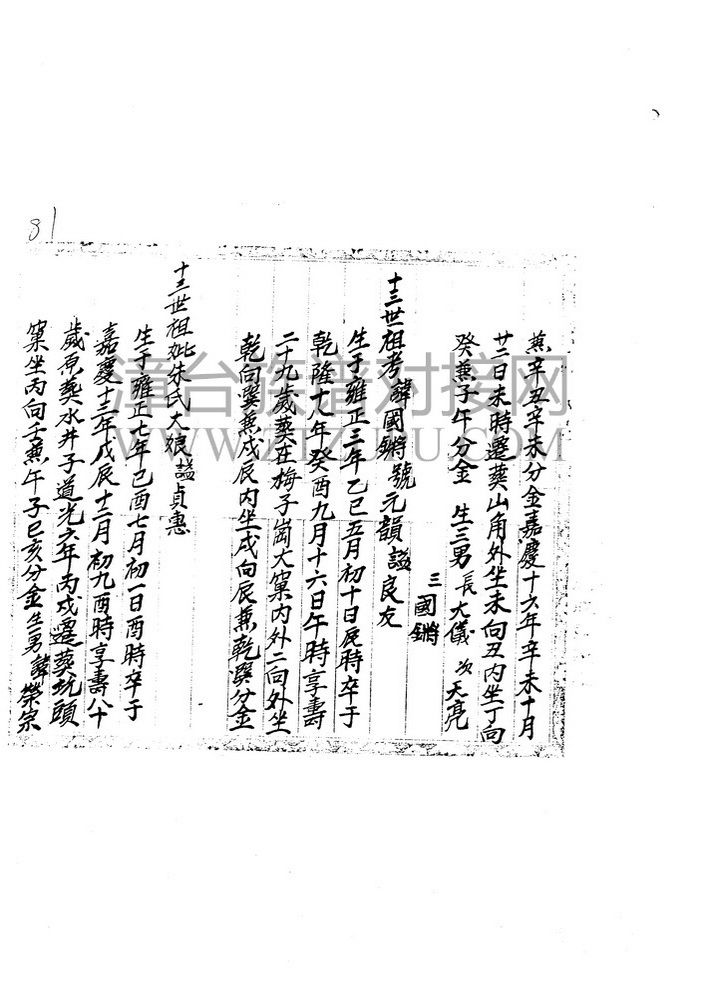 兼辛丑辛未分金嘉慶十六年辛未十月
廿二日未時遷葬山角外坐未向丑內坐丁向
癸兼子午分金 生三男 長大儀 次天亮
三國鏘
十三世祖考諱國鏘號元韻謚良友
生于雍正三年乙巳五月初十日辰時卒于
乾隆十八年癸酉九月十六日午時享壽
二十九歲葬在梅子崗大窠內外二向外坐
乾向巽兼戌辰內坐戌向辰兼乾巽分金
十三世祖妣朱氏大娘謚貞惠
生于雍正七年己酉七月初一日酉時卒于
嘉慶十三年戊辰十二月初九酉時享壽八十
歲原葬水井子道光六年丙戌遷葬坑頭
窠坐丙向壬兼午子巳亥分金生男諱榮宗
81
漳台族谱对接网
WWW.ZTZUPU.COM